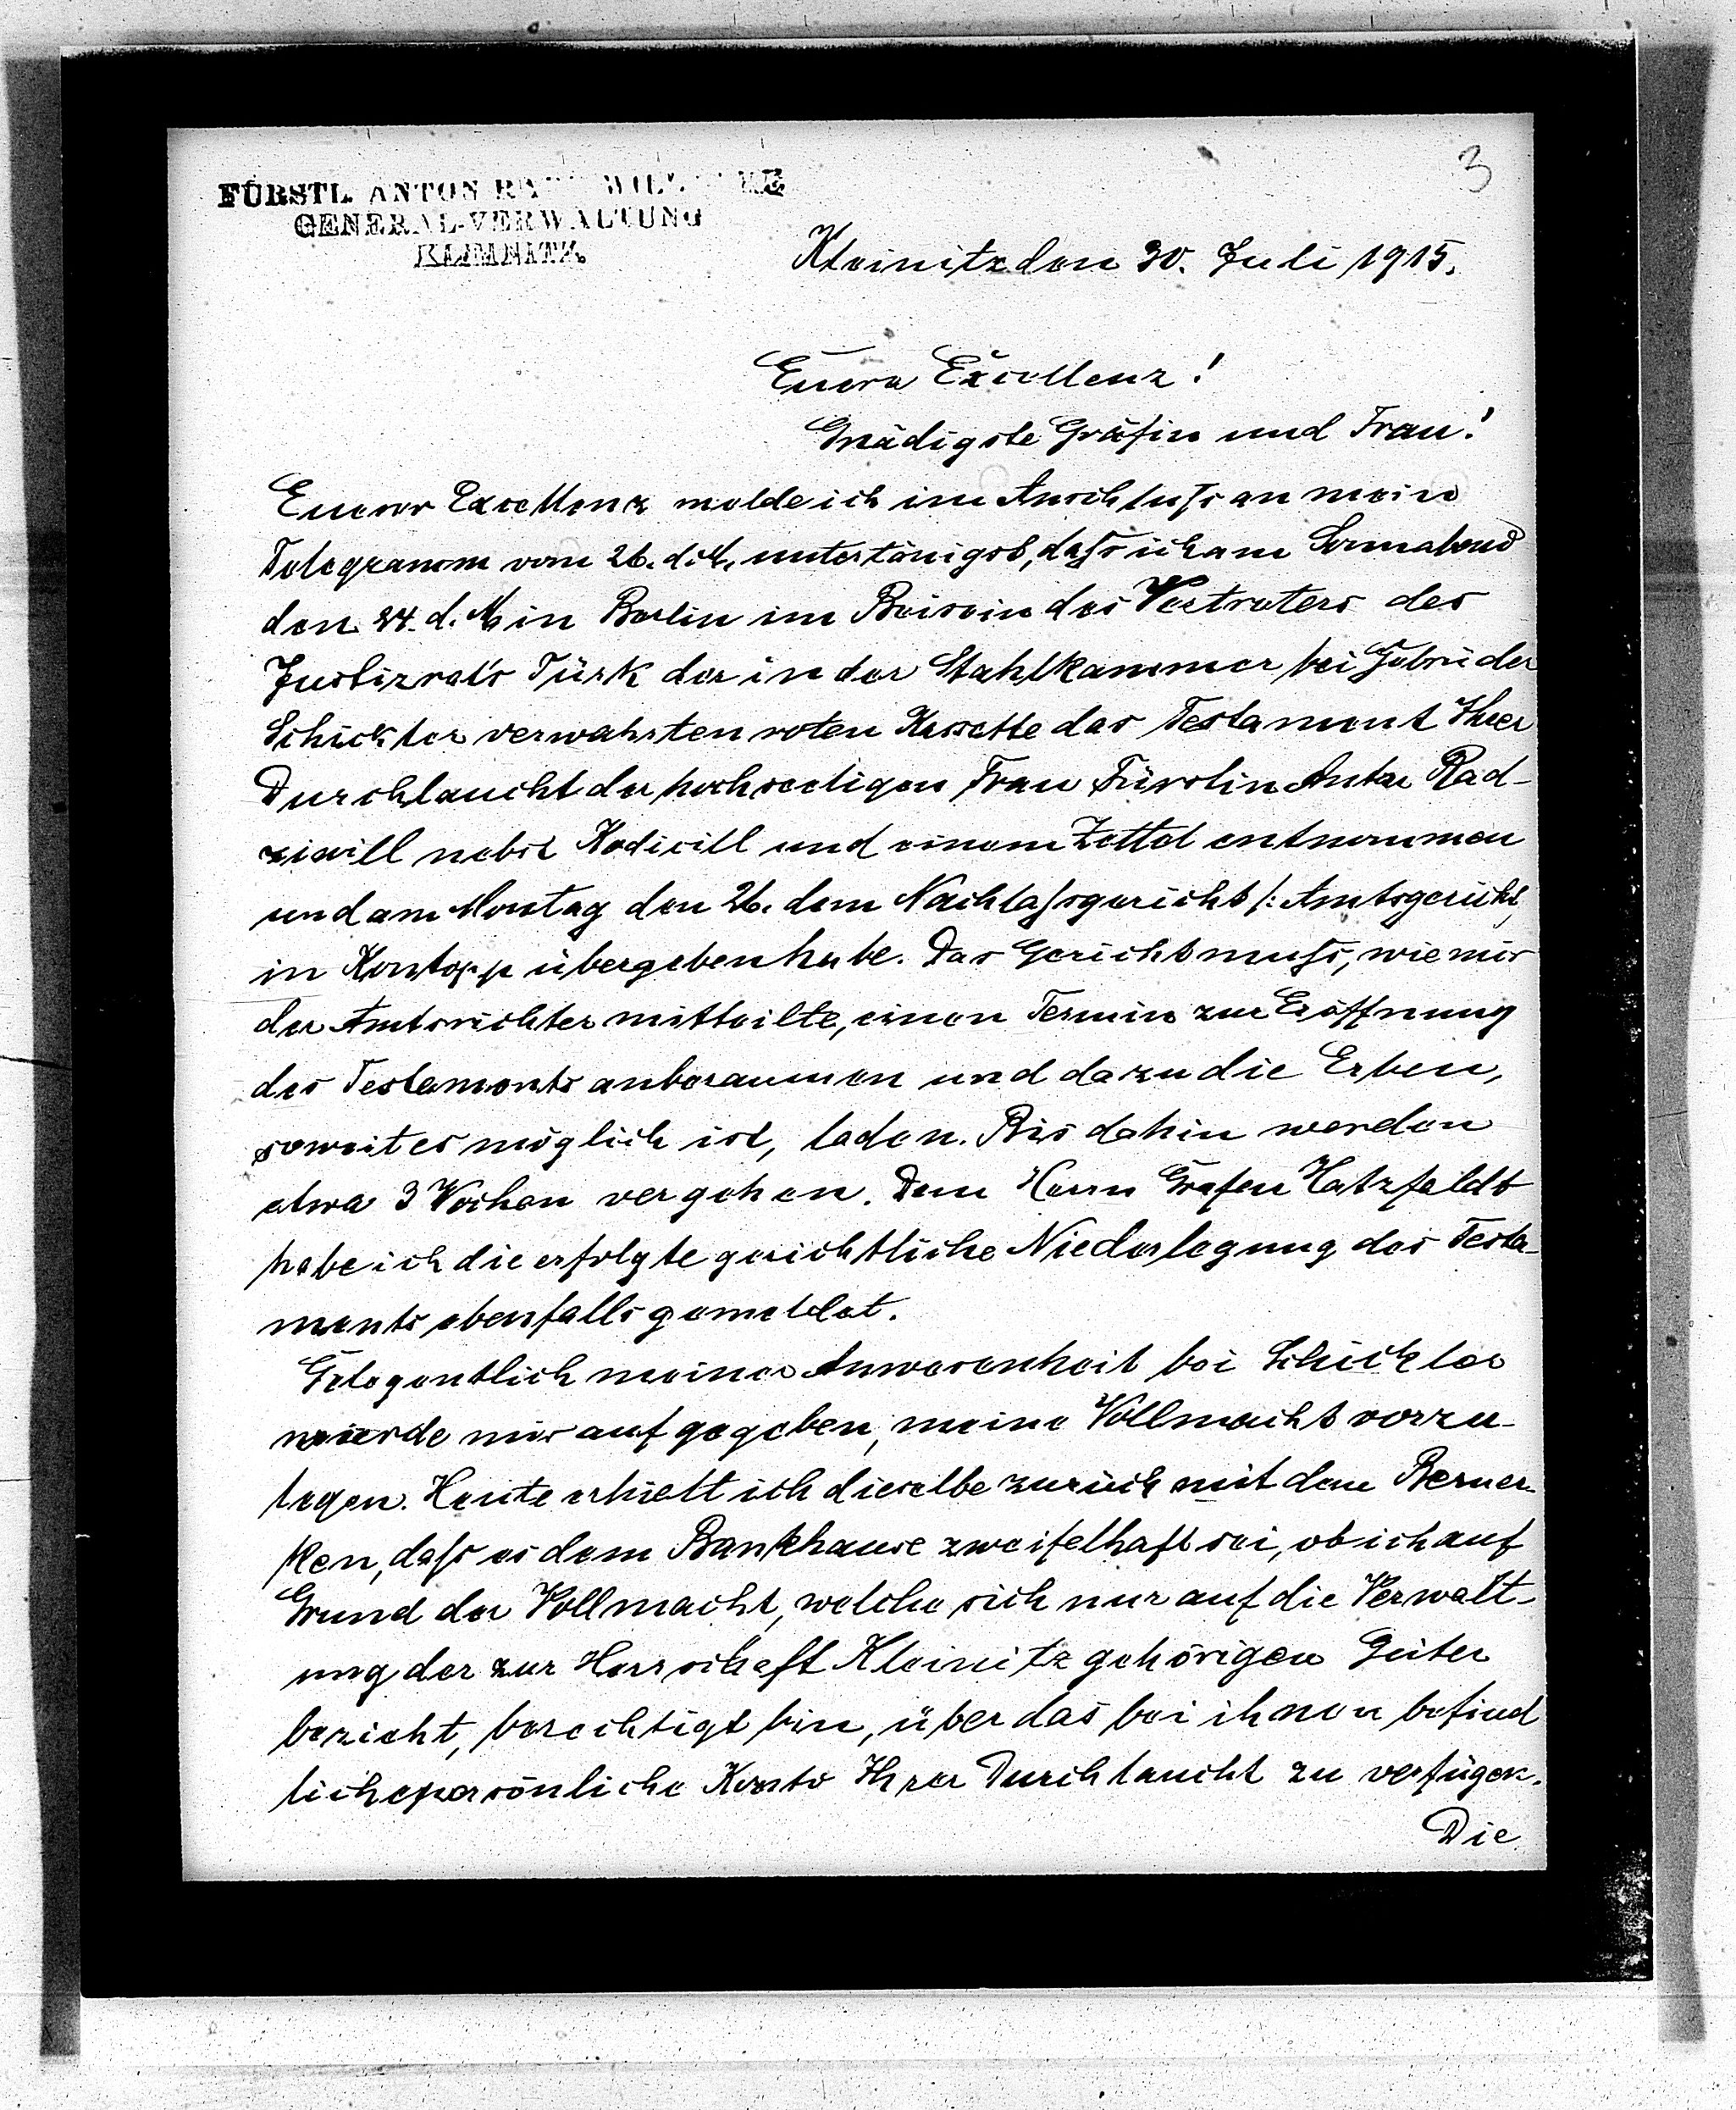 3
FÜRSTL. ANTON
GENERAL-VERWALTUNG
Kleinitz den 30. Juli 1915.
Euere Excellenz!
Gnädigste Gräfin und Frau!
Euerer Excellenz melde ich im Anschluſs an mein
Telegramm vom 26. d. M. untertänigst, daſs ich am Sonnabend
den 24. d. M. in Berlin im Beisein des Vertreters des
Justizrats Türk der in der Stahlkammer bei Gebrüder
Schickler verwahrten roten Kassette das Testament Ihrer
Durchlaucht der hochseeligen Frau Fürstin Anton Rad-
ziwill nebst Kodicill und einem Zettel entnommen
und am Montag den 26. dem Nachlaſsgericht /: Amtsgericht
in Kontopp übergeben habe. Das Gericht muſs, wie mir
der Amtsrichter mitteilte, einen Termin zur Eröffnung
des Testaments anberaumen und dazu die Erben,
soweit es möglich ist, laden. Bis dahin werden
etwa 3 Wochen vergehen. Dem Herrn Grafen Hatzfeldt
habe ich die erfolgte gerichtliche Niederlegung des Testa-
ments ebenfalls gemeldet.
Gelegentlich meiner Anwesenheit bei Schickler
wurde mir aufgegeben, meine Vollmacht vorzu-
legen. Heute erhielt ich dieselbe zurück mit dem Bemer-
ken, daſs es dem Bankhause zweifelhaft sei, ob ich auf
Grund der Vollmacht, welche sich nur auf die Verwalt-
ung der zur Herrschaft Kleinitz gehörigen Güter
bezieht, berechtigt bin, über das bei ihnen befind
liche persönliche Konto Ihrer Durchlaucht zu verfügen.
Die